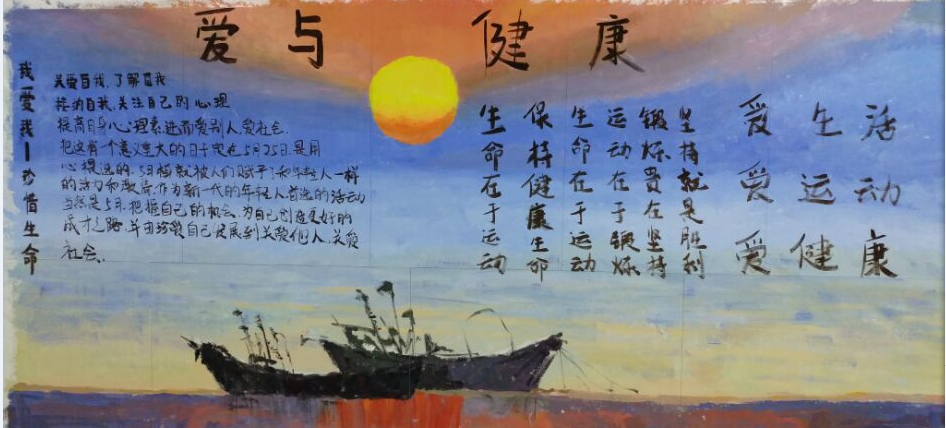 爱与健康
我爱我—珍惜生命
关爱自我、了解自我
接纳自我、关注自己的心理
提高自身心理素,进而爱别人、爱社会.
把这有个意义建大的日子定在5月25日.是用
心提选的.5月 就被人们赋予了和年轻人一样
的活力和激 .作为新一代的年轻人首选的活动
当然是5月.把握自己的机会、为自己创造更好的
成才之路.并由珍爱自己 展到关爱他人、关爱
社会.
生命在于运动
保持健康生命
生命在于运动
运动在于锻炼
锻炼贵在坚持
坚持就是胜利
爱生活
爱运动
爱健康